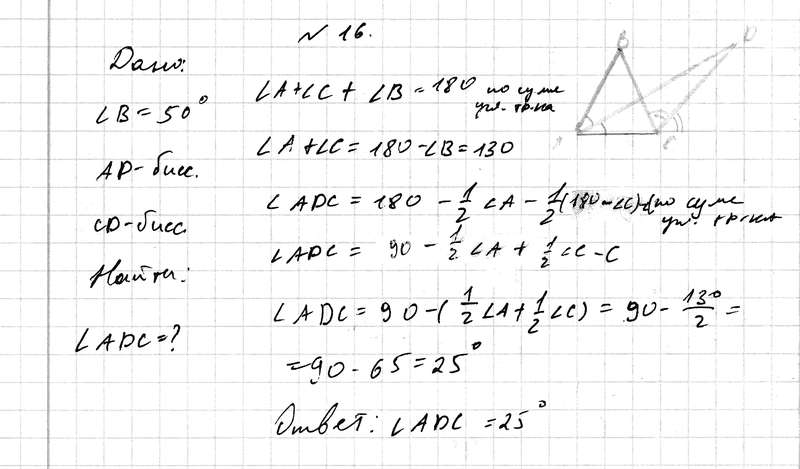 № 16.
Дано:
∠B = 50°
AD - бисс.
CD - бисс.
Найти:
∠ADC = ?
∠A + ∠C + ∠B = 180 по сумме
угл. тр-ка
∠A + ∠C = 180 - ∠B = 130
∠ADC = 180 - 1/2 ∠A - 1/2 (180 - ∠C) - ∠ по сумме
угл. тр-ка
∠ADC = 90 - 1/2 ∠A + 1/2 ∠C - C
∠ADC = 90 - (1/2 ∠A + 1/2 ∠C) = 90 - 130/2 =
= 90 - 65 = 25°
Ответ: ∠ADC = 25°
B
D
A
C